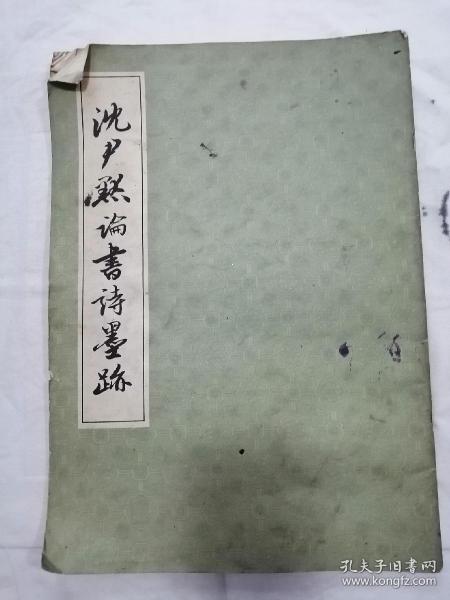 沈尹默論書詩墨跡
孔夫子旧书网
www.kongfz.com